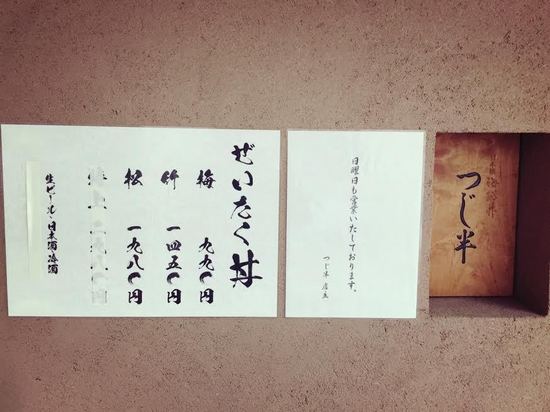 ぜいたく丼
梅 九九〇円
竹 一四五〇円
松 一九八〇円
生ビール・日本酒 冷酒
日曜日も営業いたしております。
つじ半 店主
つじ半